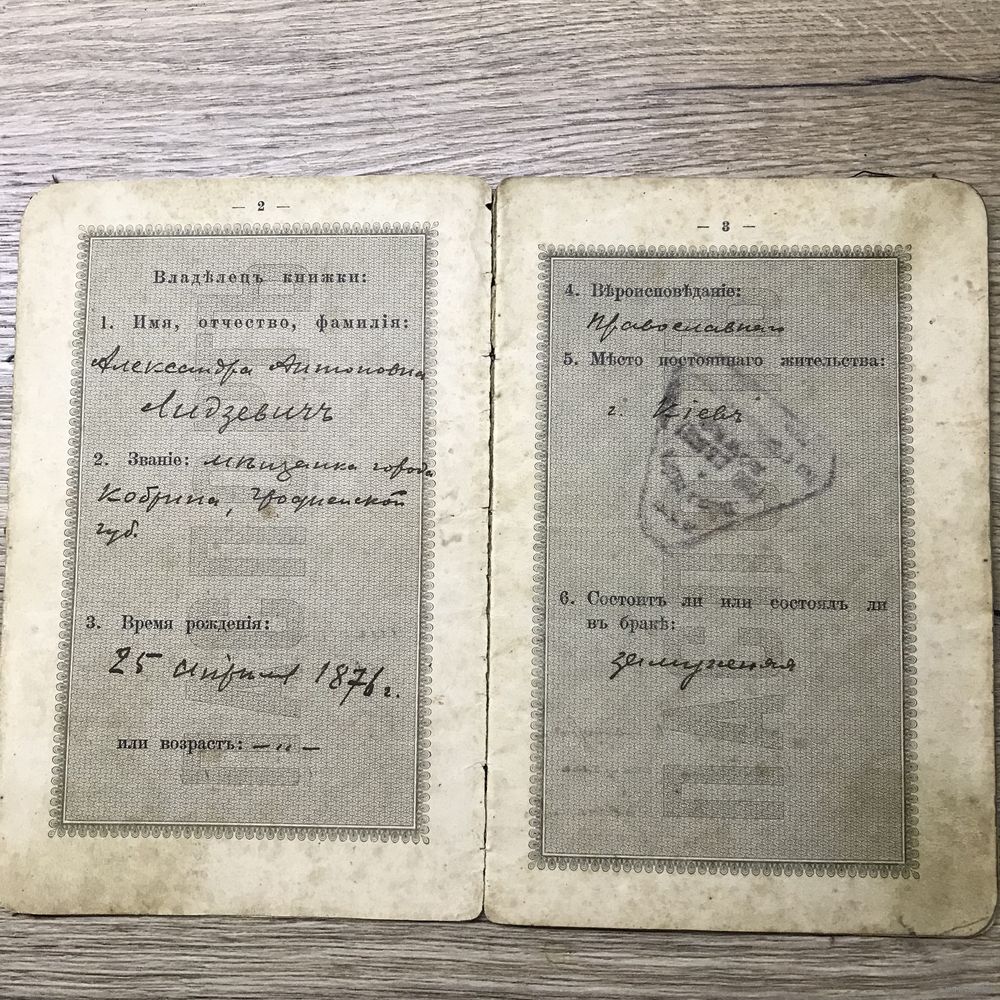 — 2 —
Владѣлецъ книжки:
1. Имя, отчество, фамилія:
Александра Антоновна
Лидзевичъ
2. Званіе: мѣщанка города
Кобрина, Гродненской
губ.
3. Время рожденія:
25 апрѣля 1876 г.
или возрастъ: — „ —
— 3 —
4. Вѣроисповѣданіе:
5. Мѣсто постояннаго жительства:
г. Кіевъ
6. Состоитъ ли или состоялъ ли
въ бракѣ:
замужняя